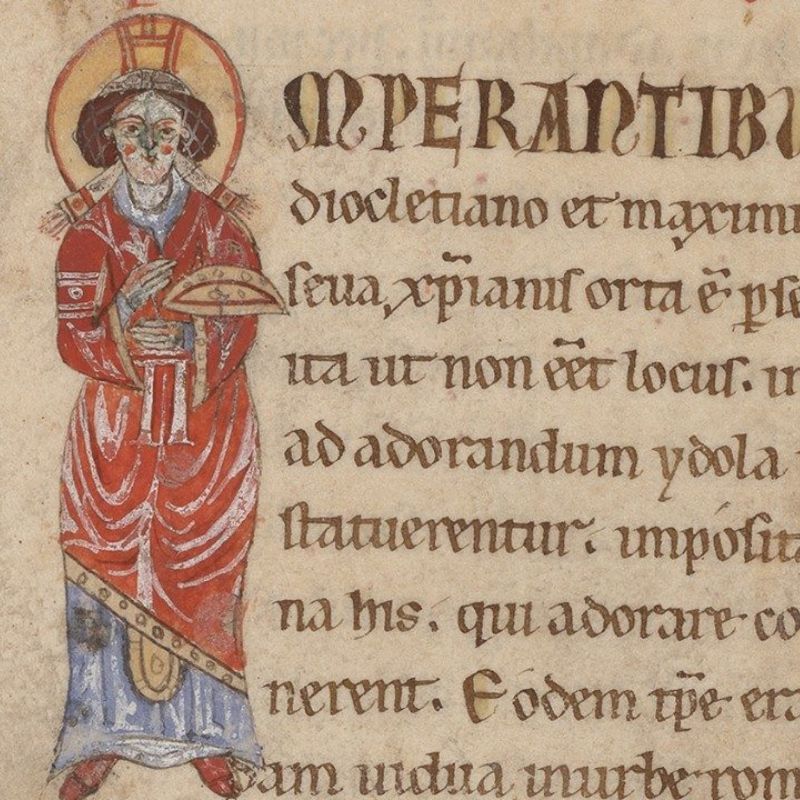 MPERANTIBU
diocletiano et maximi
seua, xp̄ianis orta ē pse
ita ut non eēt locus. in
ad adorandum ydola
statuerentur. imposita
na his. qui adorare co
nerent. Eodem tp̄e era
dam uidua inurbe rom